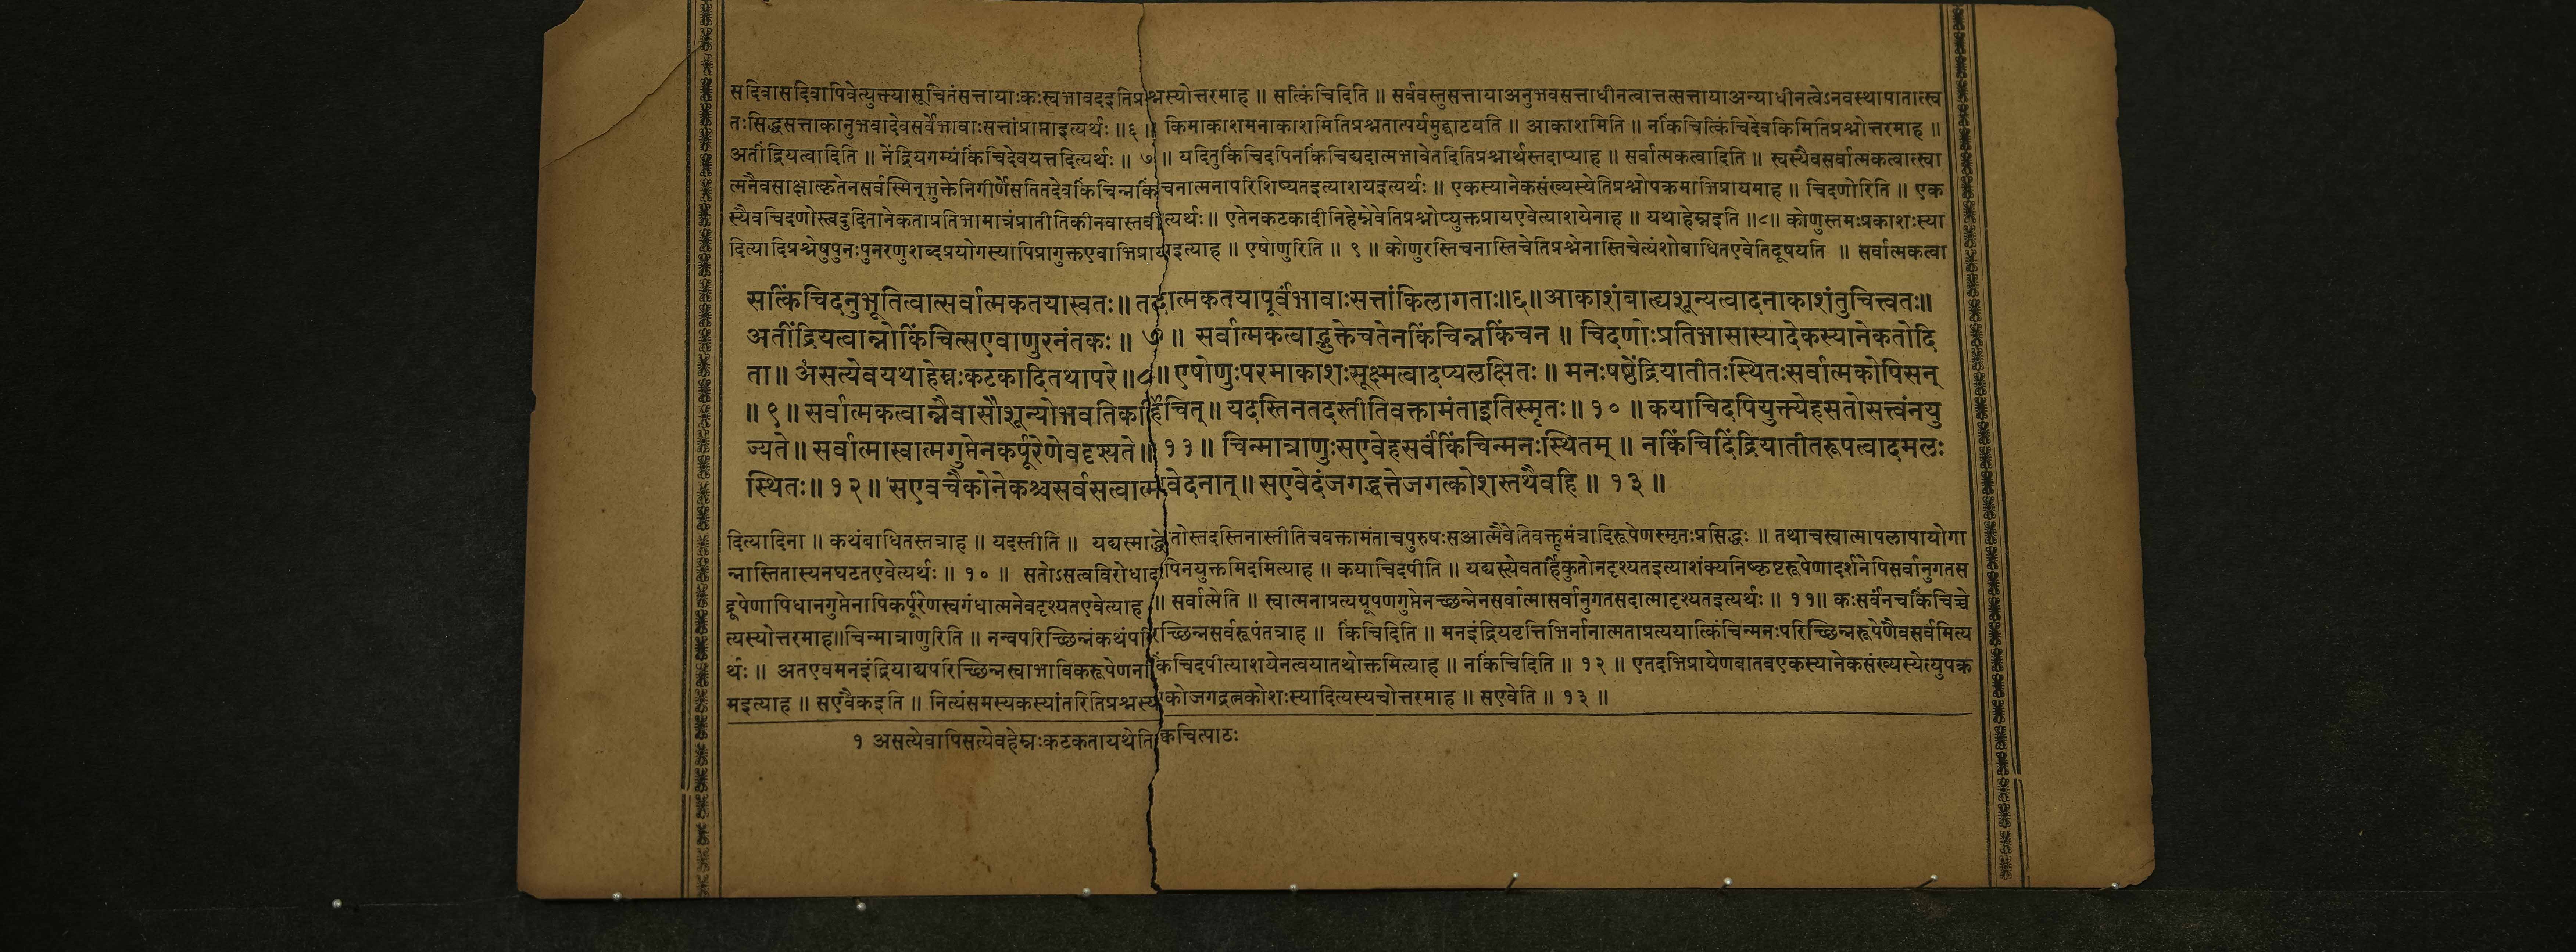 सदिवासदिवापिवेत्युक्त्यासूचितंसत्तायाःकःस्वभावदइतिप्रश्नस्योत्तरमाह ॥ सत्किंचिदिति ॥ सर्ववस्तुसत्तायाअनुभवसत्ताधीनत्वात्तत्सत्तायाअन्याधीनत्वेऽनवस्थापातात्स्व
तःसिद्धसत्ताकानुभवादेवसर्वेभावाःसत्तांप्राप्ताइत्यर्थः ॥६॥ किमाकाशमनाकाशमितिप्रश्नतात्पर्यमुद्घाटयति ॥ आकाशमिति ॥ नकिंचित्किंचिदेवकिमितिप्रश्नोत्तरमाह ॥
अतींद्रियत्वादिति ॥ नेंद्रियगम्यंकिंचिदेवयत्तदित्यर्थः ॥ ७ ॥ यदितुकिंचिदपिनकिंचिद्यदात्मभावेतदितिप्रश्नार्थस्तदाप्याह ॥ सर्वात्मकत्वादिति ॥ स्वस्यैवसर्वात्मकत्वात्स्वा
त्मनैवसाक्षात्कृतेनसर्वस्मिन्भुक्तेनिगीर्णेसतितदेवकिंचिन्नकिंचनात्मनापरिशिष्यतइत्याशयइत्यर्थः ॥ एकस्यानेकसंख्यस्येतिप्रश्नोपक्रमाभिप्रायमाह ॥ चिदणोरिति ॥ एक
स्यैवचिदणोस्त्वदुदितानेकताप्रतिभामात्रंप्रातीतिकीनवास्तवीत्यर्थः ॥ एतेनकटकादीनिहेम्नेवेतिप्रश्नोप्युक्तप्रायएवेत्याशयेनाह ॥ यथाहेम्नइति ॥८॥ कोणुस्तमःप्रकाशःस्या
दित्यादिप्रश्नेषुपुनःपुनरणुशब्दप्रयोगस्यापिप्रागुक्तएवाभिप्रायइत्याह ॥ एषोणुरिति ॥ ९ ॥ कोणुरस्तिचनास्तिचेतिप्रश्नेनास्तिचेत्यंशोबाधितएवेतिदूषयति ॥ सर्वात्मकत्वा
सत्किंचिदनुभूतित्वात्सर्वात्मकतयास्वतः ॥ तदात्मकतयापूर्वंभावाःसत्तांकिलागताः॥६॥आकाशंबाह्यशून्यत्वादनाकाशंतुचित्त्वतः॥
अतींद्रियत्वान्नोकिंचित्सएवाणुरनंतकः ॥ ७ ॥ सर्वात्मकत्वाद्भुक्तेचतेनकिंचिन्नकिंचन ॥ चिदणोःप्रतिभासास्यादेकस्यानेकतोदि
ता ॥ अंसत्येवयथाहेम्नःकटकादितथापरे ॥८॥ एषोणुःपरमाकाशःसूक्ष्मत्वादप्यलक्षितः ॥ मनःषष्ठेंद्रियातीतःस्थितःसर्वात्मकोपिसन्
॥ ९ ॥ सर्वात्मकत्वान्नैवासौशून्योभवतिकर्हिचित् ॥ यदस्तिनतदस्तीतिवक्तामंताइतिस्मृतः ॥ १० ॥ कयाचिदपियुक्त्येहसतोसत्त्वंनयु
ज्यते ॥ सर्वात्मास्वात्मगुप्तेनकर्पूरेणेवदृश्यते ॥ ११ ॥ चिन्मात्राणुःसएवेहसर्वंकिंचिन्मनःस्थितम् ॥ नकिंचिदिंद्रियातीतरूपत्वादमलः
स्थितः ॥ १२ ॥ सएवचैकोनेकश्चसर्वसत्वात्मवेदनात् ॥ सएवेदंजगद्धत्तेजगत्कोशस्तथैवहि ॥ १३ ॥
दित्यादिना ॥ कथंबाधितस्तत्राह ॥ यदस्तीति ॥ यद्यस्माद्धेतोस्तदस्तिनास्तीतिचवक्तामंताचपुरुषःसआत्मैवेतिवक्तृमंत्रादिरूपेणस्मृतःप्रसिद्धः ॥ तथाचस्वात्मापलापायोगा
न्नास्तितास्यनघटतएवेत्यर्थः ॥ १० ॥ सतोऽसत्वविरोधादपिनयुक्तमिदमित्याह ॥ कयाचिदपीति ॥ यद्यस्त्येवतर्हिकुतोनदृश्यतइत्याशंक्यनिष्कृष्टरूपेणादर्शनेपिसर्वानुगतस
द्रूपेणापिधानगुप्तेनापिकर्पूरेणस्वगंधात्मनेवदृश्यतएवेत्याह ॥ सर्वात्मेति ॥ स्वात्मनाप्रत्ययूपणगुप्तेनच्छन्नेनसर्वात्मासर्वानुगतसदात्मादृश्यतइत्यर्थः ॥ ११॥ कःसर्वंनचकिंचिच्चे
त्यस्योत्तरमाह॥चिन्मात्राणुरिति ॥ नन्वपरिच्छिन्नंकथंपरिच्छिन्नसर्वरूपंतत्राह ॥ किंचिदिति ॥ मनइंद्रियवृत्तिभिर्नानात्मताप्रत्ययात्किंचिन्मनःपरिच्छिन्नरूपेणैवसर्वमित्य
र्थः ॥ अतएवमनइंद्रियाद्यपरिच्छिन्नस्वाभाविकरूपेणनकिंचिदपीत्याशयेनत्वयातथोक्तमित्याह ॥ नकिंचिदिति ॥ १२ ॥ एतदभिप्रायेणवातवएकस्यानेकसंख्यस्येत्युपक्र
मइत्याह ॥ सएवैकइति ॥ नित्यंसमस्यकस्यांतरितिप्रश्नस्यकोजगद्रत्नकोशःस्यादित्यस्यचोत्तरमाह ॥ सएवेति ॥ १३ ॥
१ असत्येवापिसत्येवहेम्नःकटकतायथेतिक्वचित्पाठः